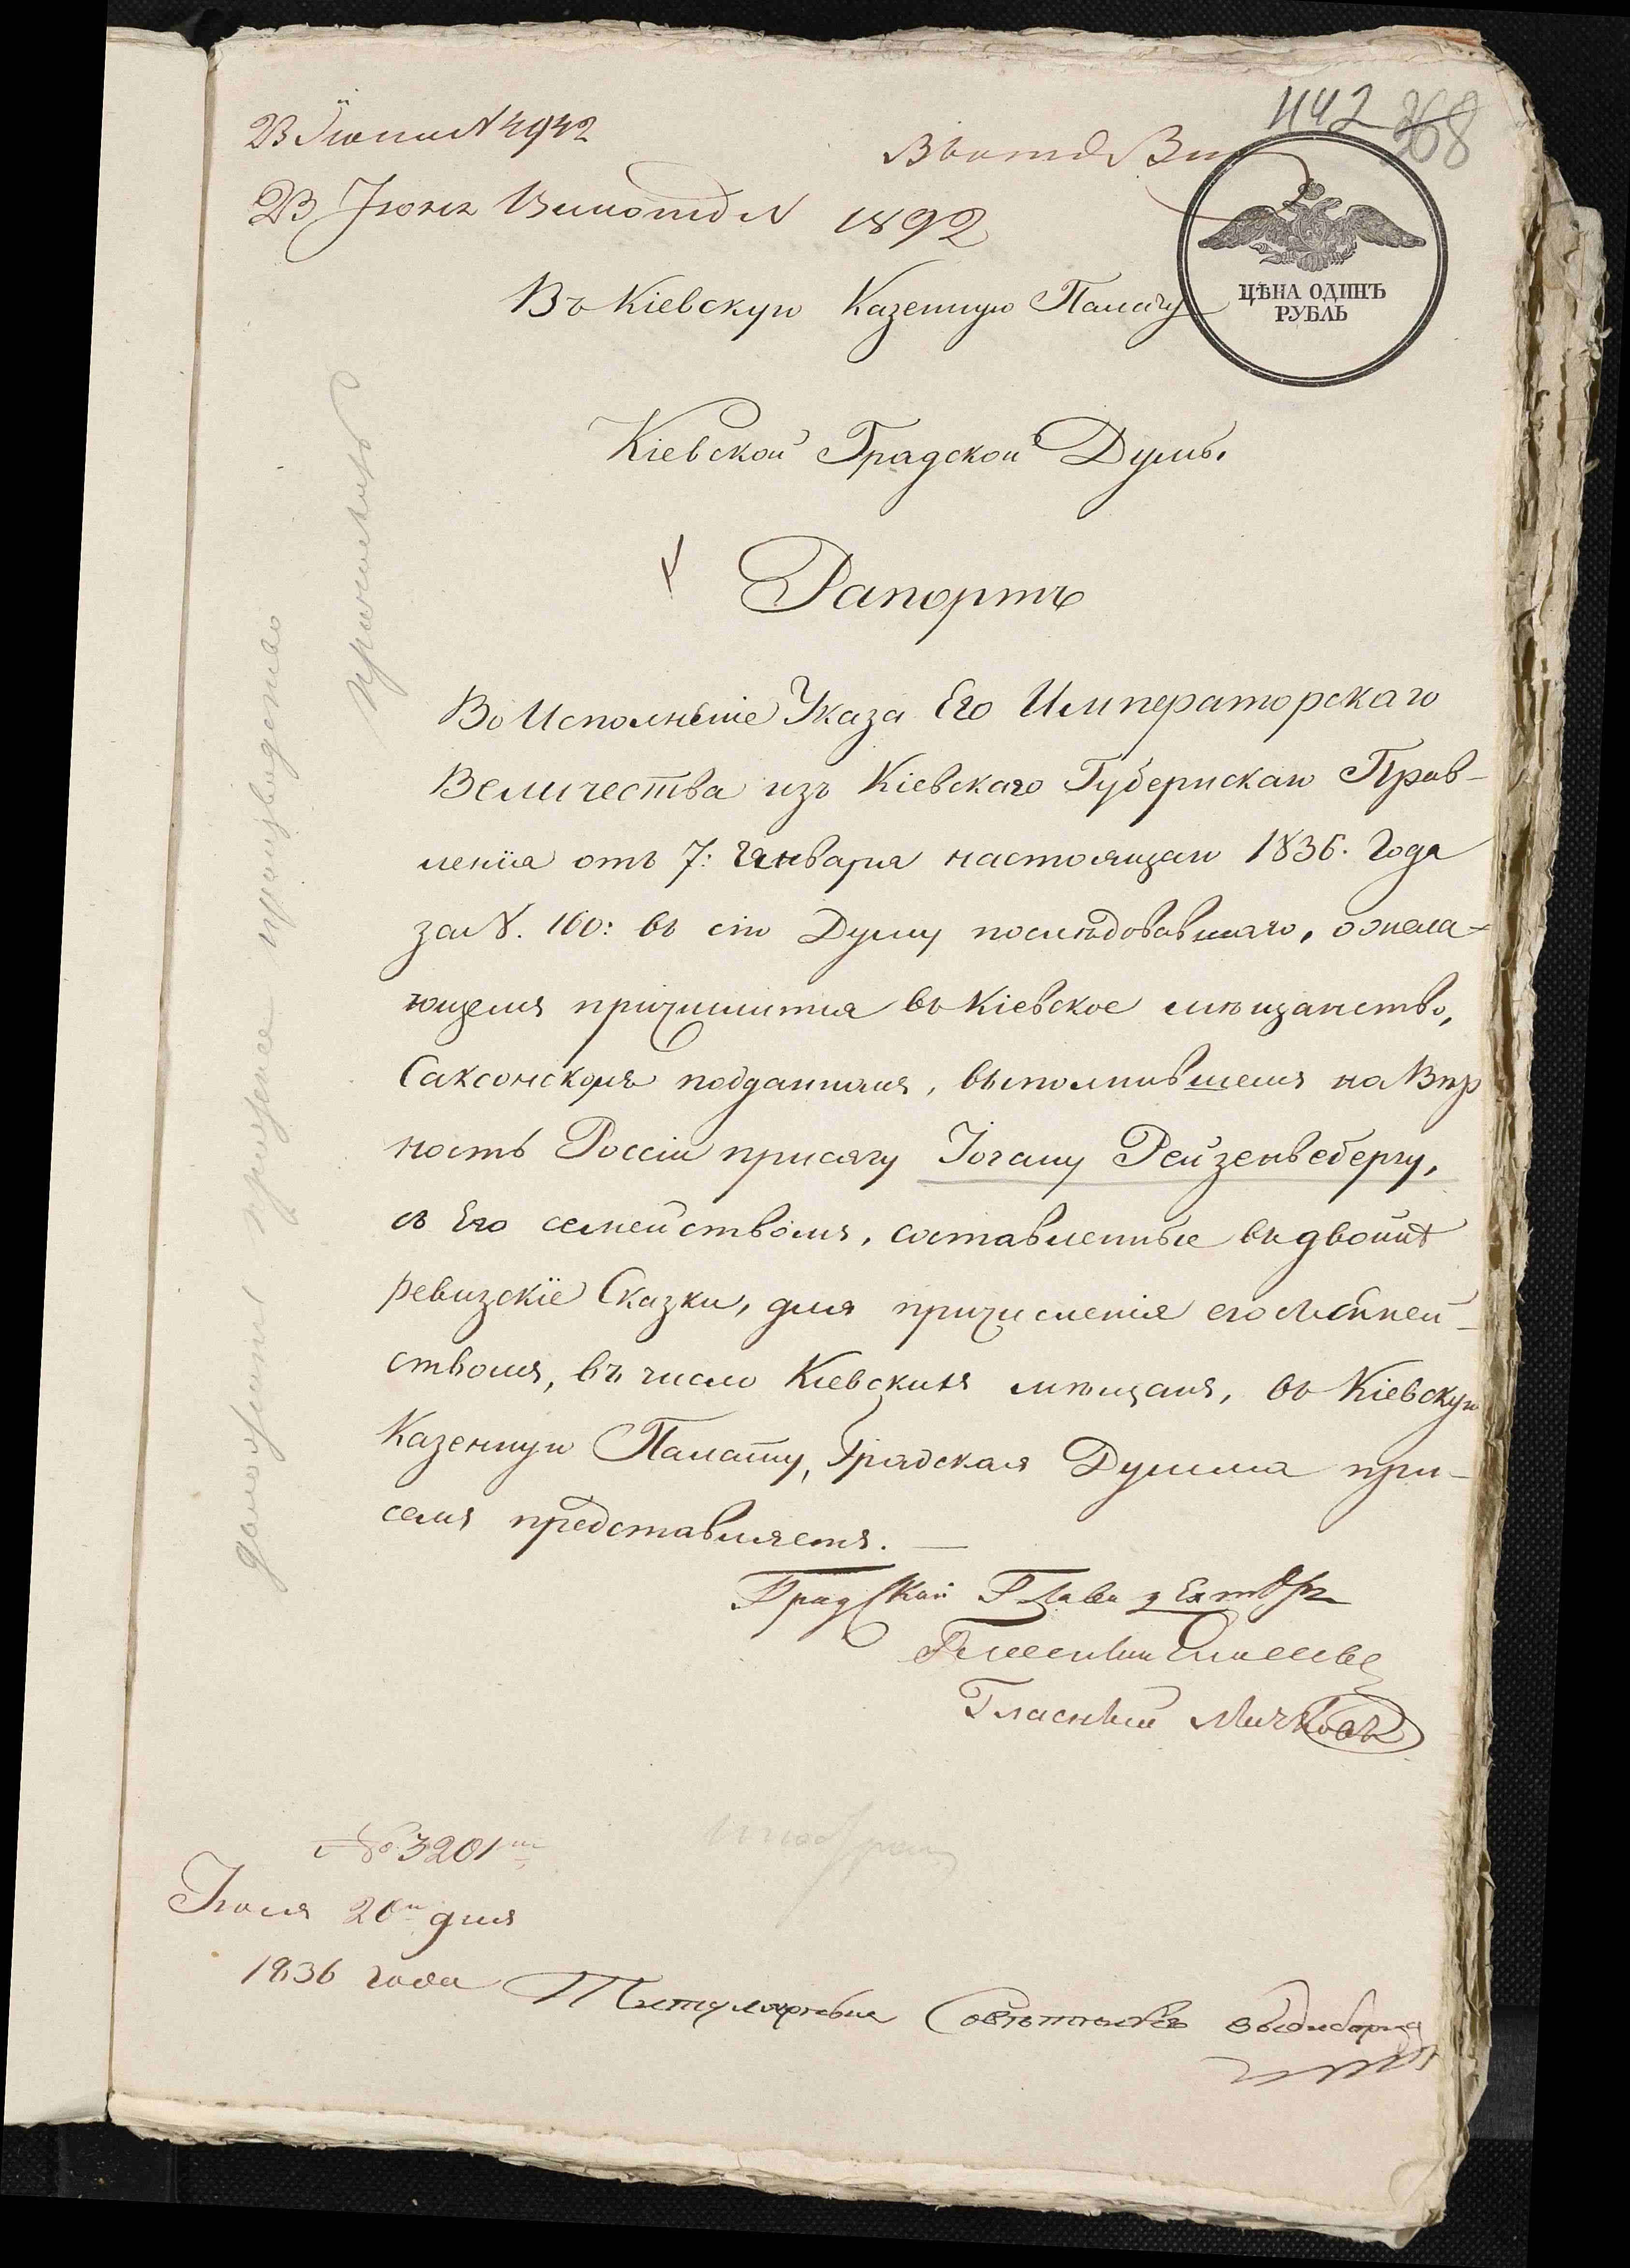 442 368
23 Іюня N 4942
23 Іюня N 1892
ЦѢНА ОДИНЪ
РУБЛЬ
Въ Кіевскую Казенную Палату
Кіевской Градской Думы.
Рапортъ
Во Исполнѣніе Указа Его Императорскаго
Величества изъ Кіевскаго Губернскаго Прав-
ленія отъ 7: Генваря настоящаго 1836. Года
за N. 160: въ сію Думу послѣдовавшаго, о жела-
ющемъ причислится въ Кіевское мѣщанство,
Саксонскомъ подданномъ, выполнившемъ на Вѣр
ность Россіи присягу Іогану Рейзенвебергу,
съ Его семействомъ, составленные въ двойнѣ
ревизскіе Сказки, для причисленія его съ семей-
ствомъ, въ число Кіевскихъ мѣщанъ, въ Кіевскую
Казенную Палату, Градская Думма при-
семъ представляетъ.
Градской Глава
Гласный
Гласный
№ 3201
Іюня 20 дня
1836 года
Титулярный Совѣтникъ